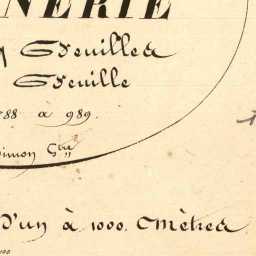 NERIE
Feuilles
Feuille
788 à 989.
Simon Gre
D'un à 1000. Mètres